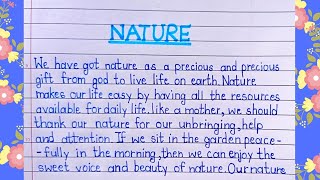 NATURE
We have got nature as a precious and precious
gift from god to live life on earth.Nature
makes our life easy by having all the resources
available for daily life.like a mother, we should
thank our nature for our unbringing,help
and attention.If we sit in the garden peace-
-fully in the morning,then we can enjoy the
sweet voice and beauty of nature.Our nature